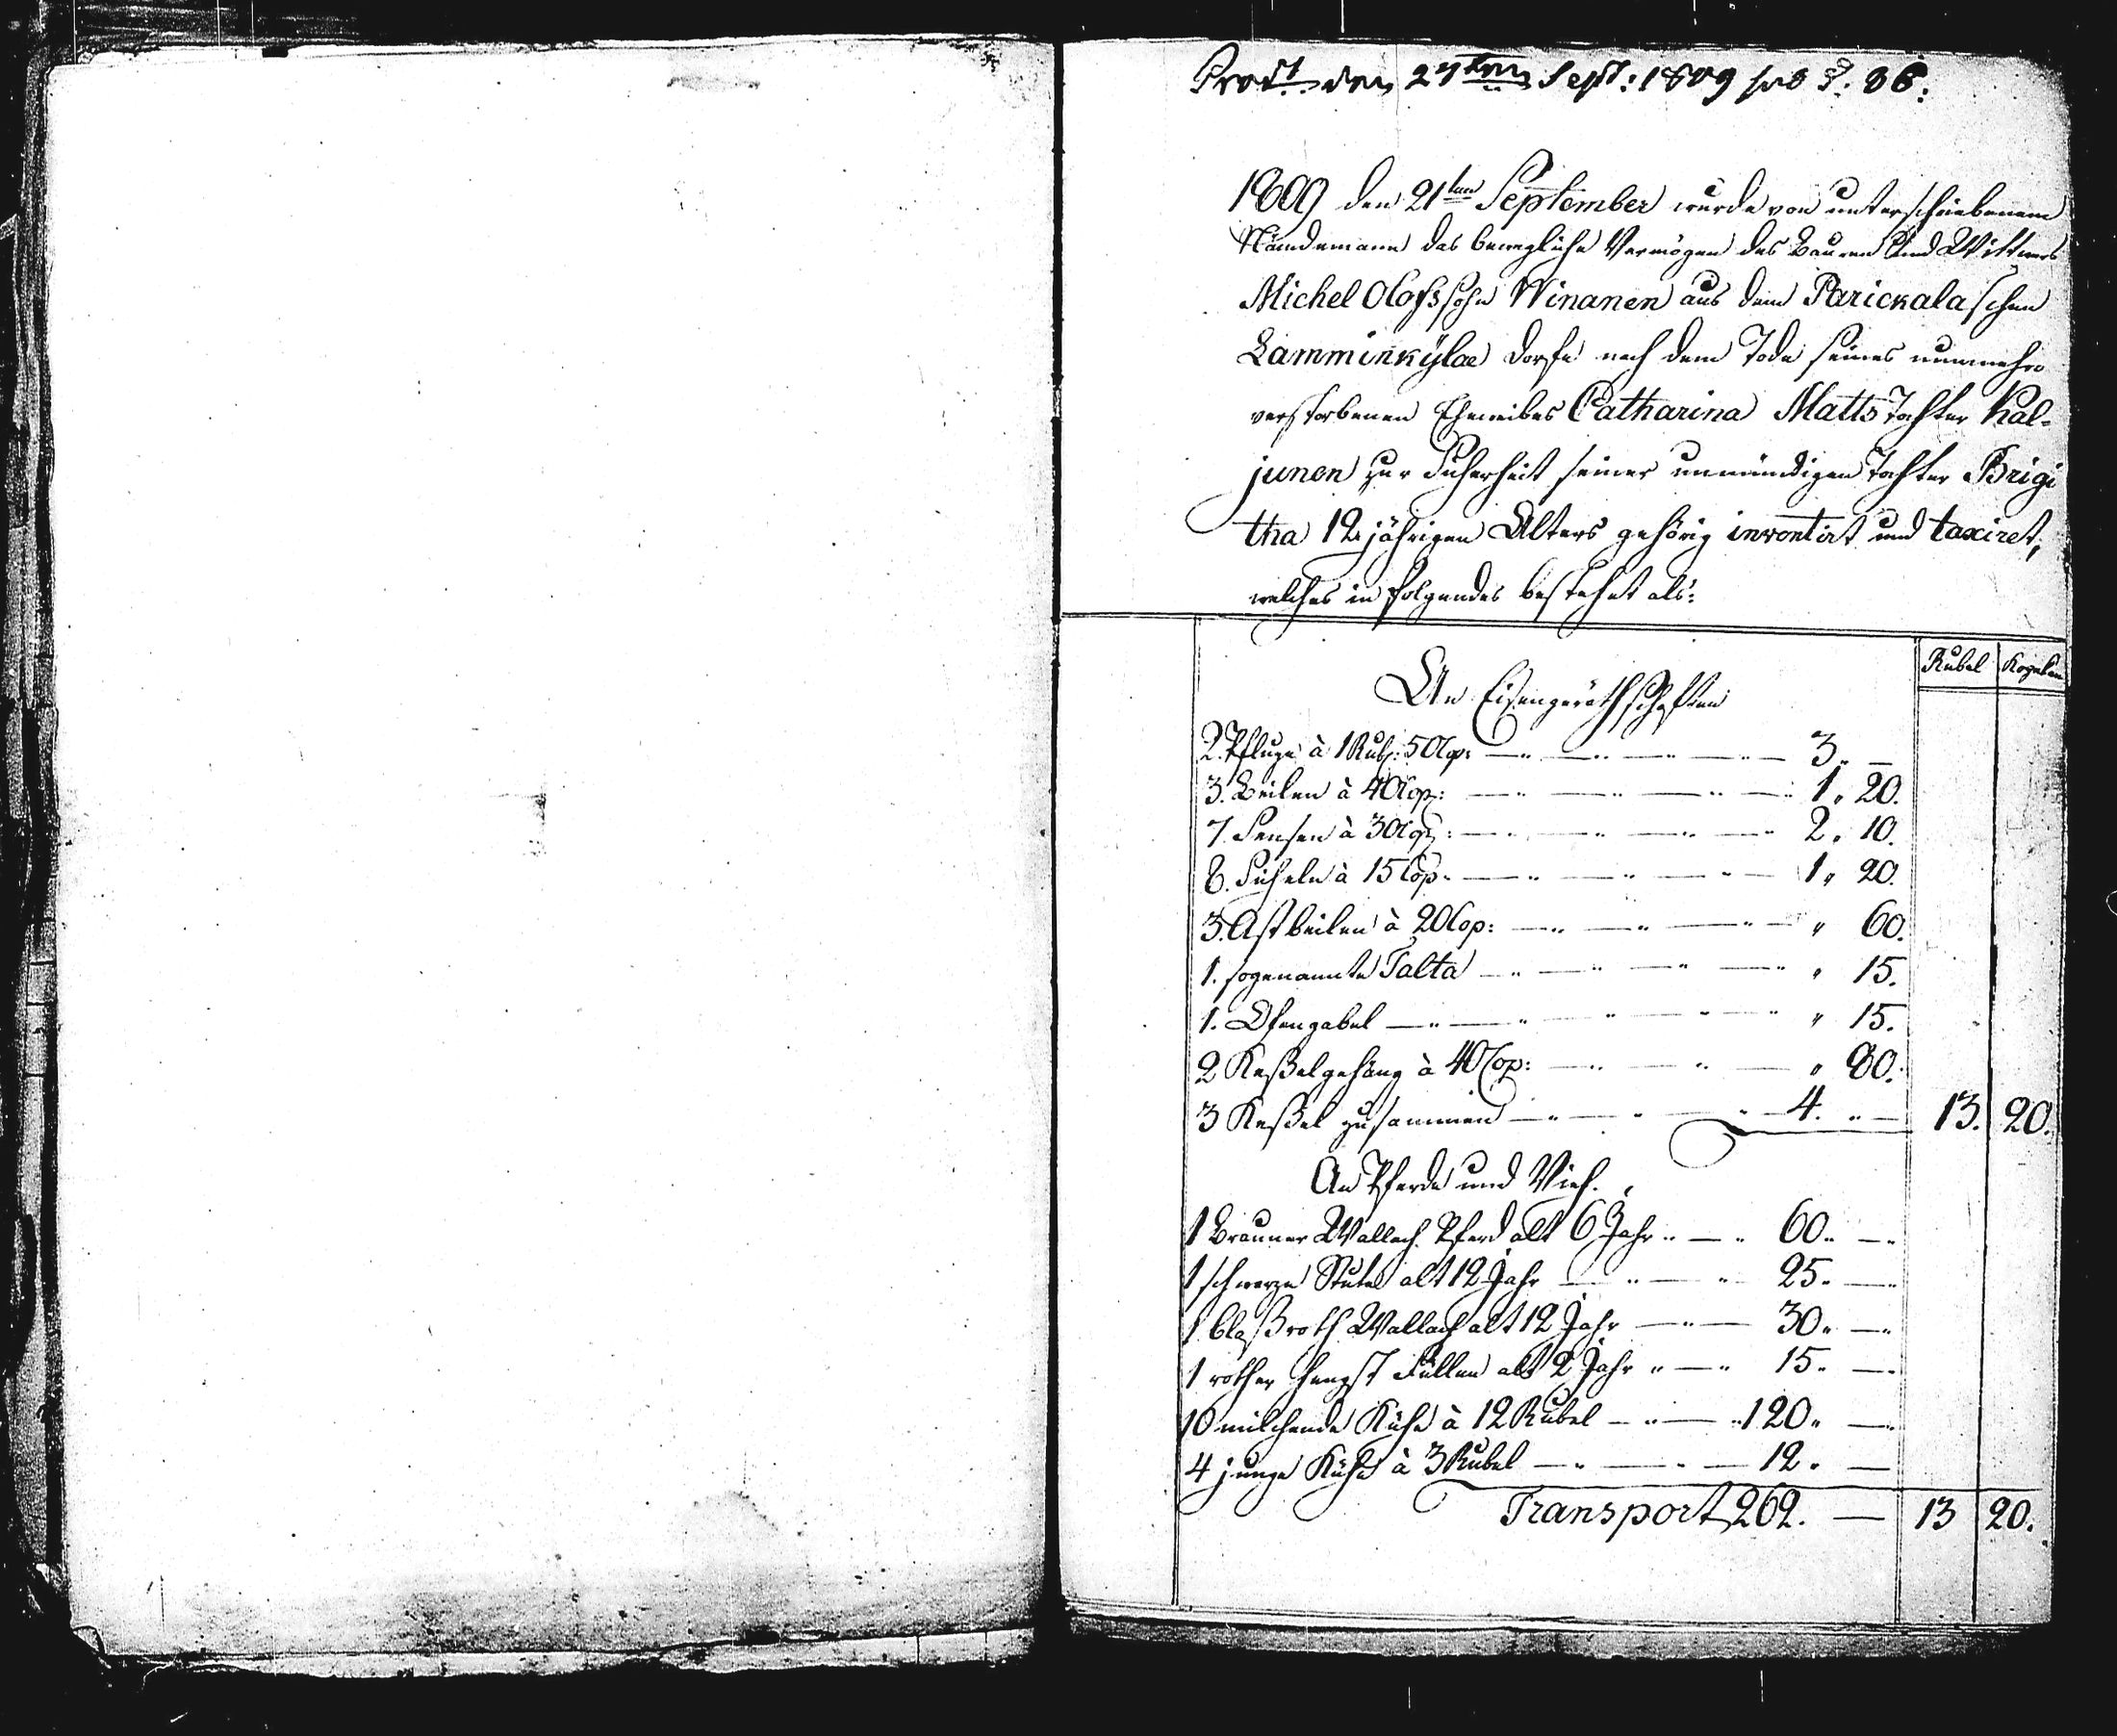 Prod:t den 27ten Sept: 1809 sub §. 36.
1809 den 21ten September wurde von unterschriebenem
Nämdemann das bewegliche Vermögen des Bauren und Wittwers
Michel Olofs sohn Winanen aus dem Parickalaschen
Lamminkÿlae Dorfe nach dem Tode seines nunmehro
verstorbenen Eheweibes Catharina Matts Tochter Kal-
junen zur Sicherheit seiner unmündigen Tochter Brigi
tha 12 jährigen Alters gehörig inventirt und taxiret,
welches in folgendes bestehet als:
Rubel Kopeken
An Eisengeräthschaften
2. Pfluge à 1 Rub: 50 Cop: 3. —
3. Beilen à 40 Cop: 1. 20.
7. Sensen à 30 Cop: 2. 10.
8. Sicheln à 15 Cop. 1. 20.
3. Astbeilen à 20 Cop: " 60.
1. sogenannte Talta " 15.
1. Ofengabel " 15.
2 Keßelgehäng à 40 Cop: " 80.
3 Keßel zusammen 4. " — 13. 20.
An Pferde und Vieh.
1 Brauner Wallach Pferd alt 6 Jahr 60. —
1 schwarze Stute alt 12 Jahr 25. —
1 blaßroth Wallach alt 12 Jahr 30. —
1 rother Hengst Füllen alt 2 Jahr 15. —
10 milchende Kühe à 12 Rubel 120. —
4 junge Kühe à 3 Rubel 12. —
Transport 262. — 13 20.